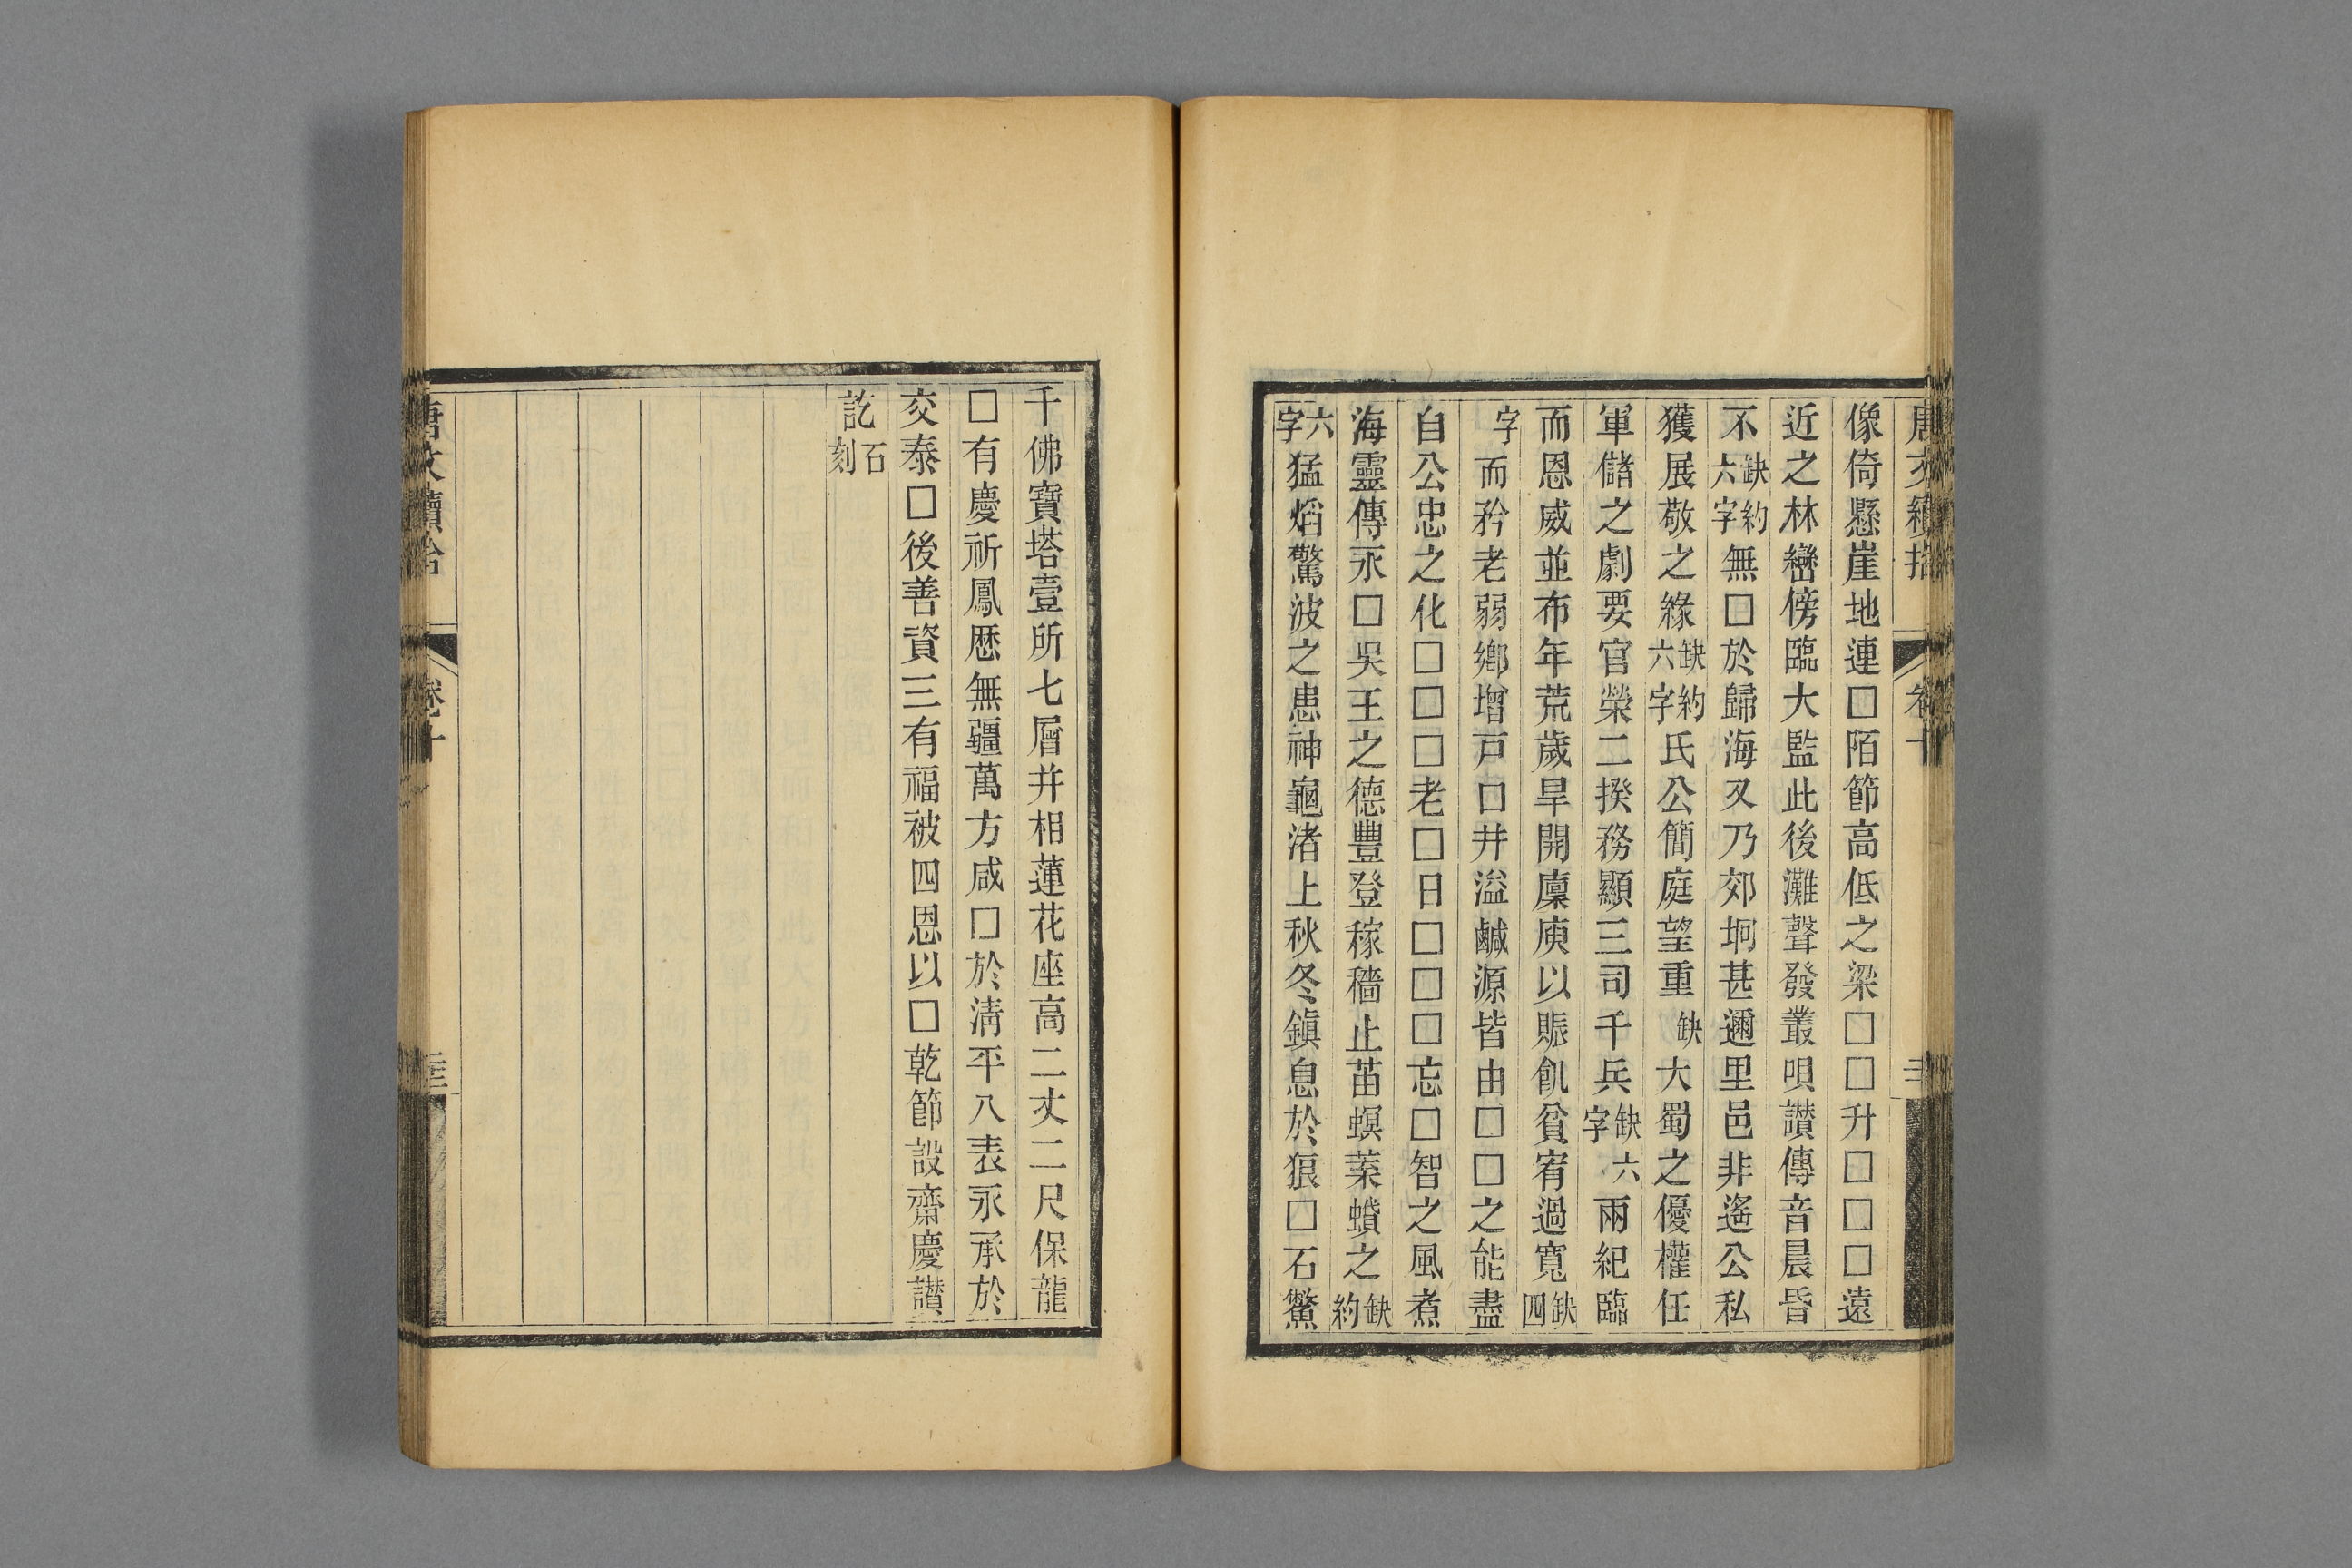 像倚懸崖地連□陌節高低之梁□□升□□□遠
近之林巒傍臨大監此後灘聲發叢唄讃傳音晨昏
不缺約六字無□於歸海又乃郊坰甚邇里邑非遙公私
獲展敬之緣缺約六字氏公簡庭望重缺大蜀之優權任
軍儲之劇要官榮二揆務顯三司千兵缺六字兩紀臨
而恩威並布年荒歲旱開廩庾以賑飢貧宥過寬缺四
字而矜老弱鄉增戸口井溢鹹源皆由□□之能盡
自公忠之化□□□老□日□□□忘□智之風煮
海靈傳永□吳王之德豐登稼穡止苗螟葉蟥之缺約
六字猛熖驚波之患神龜渚上秋冬鎭息於狼□石鱉
唐文續拾
卷十
千佛寶塔壹所七層并相蓮花座高二丈二尺保龍
□有慶祈鳳厯無疆萬方咸□於淸平八表永承於
交泰□後善資三有福被四恩以□乾節設齋慶讃
訖石刻
唐文續拾
卷十